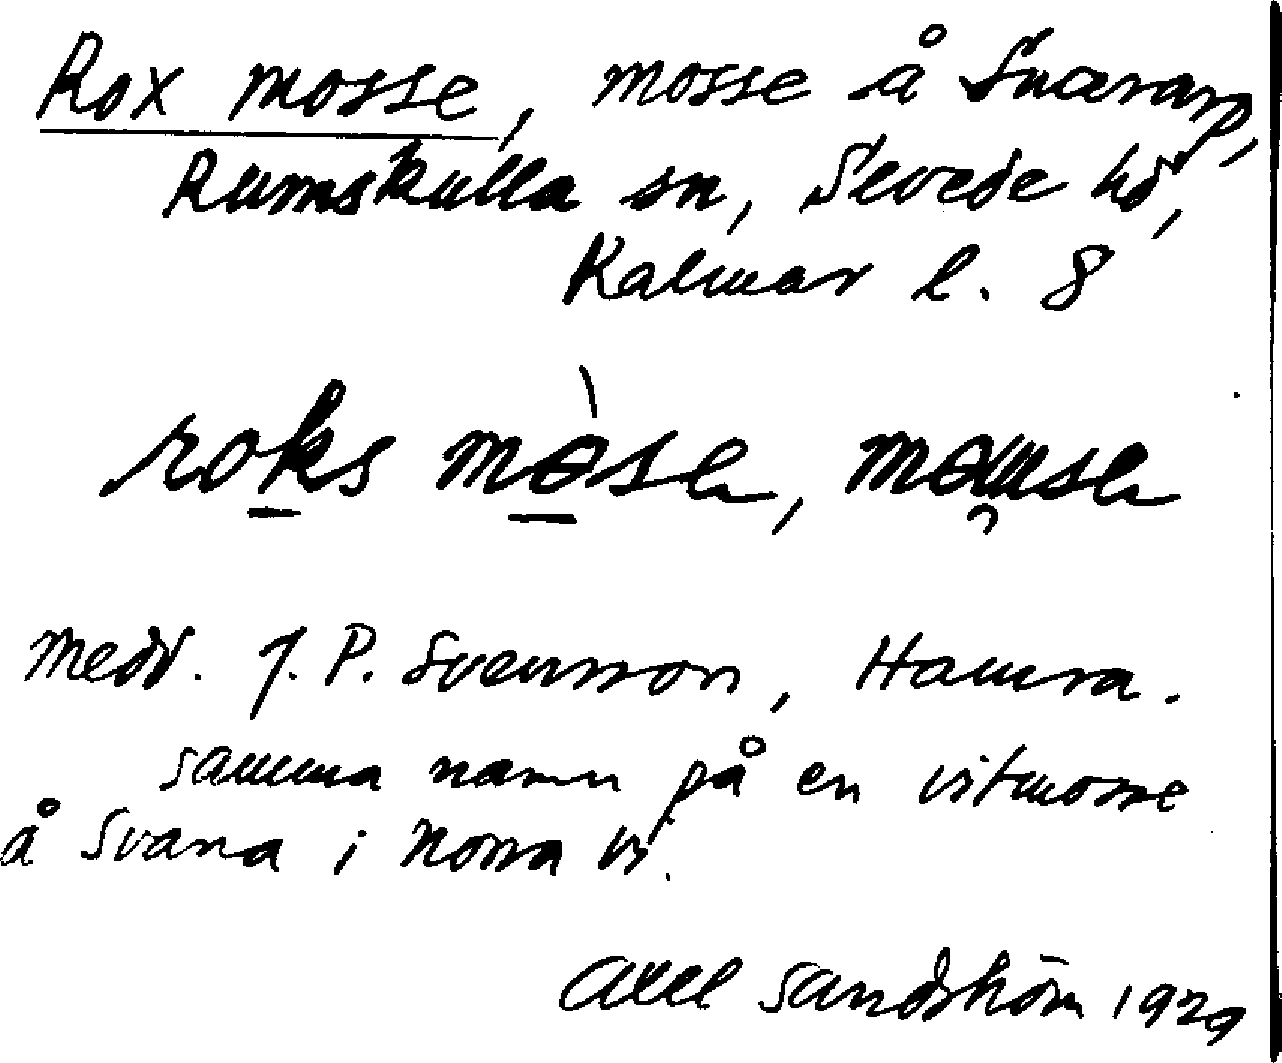 Rox mosse, mosse å Snararp,
Rumskulla sn, Sevede hd,
Kalmar l. 8
roks mosse, mousse
Medd. J. P. Svensson, Hamra.
samma namn på en vitmosse
å Svana i Norra Vi.
Axel Sandström 1929